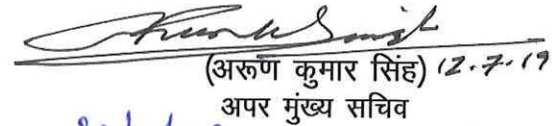 (अरूण कुमार सिंह) 12.7.19
अपर मुंख्य सचिव